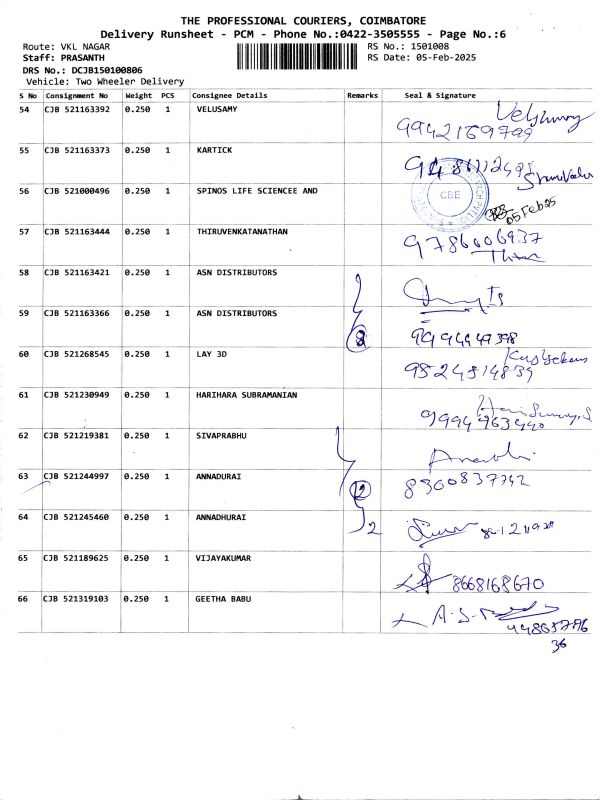 THE PROFESSIONAL COURIERS, COIMBATORE
Delivery Runsheet - PCM - Phone No.:0422-3505555 - Page No.:6
Route: VKL NAGAR
RS No.: 1501008
Staff: PRASANTH
RS Date: 05-Feb-2025
DRS No.: DCJB150100806
Vehicle: Two Wheeler Delivery
S No Consignment No Weight PCS Consignee Details Remarks Seal & Signature
54 CJB 521163392 0.250 1 VELUSAMY
9942169799
55 CJB 521163373 0.250 1 KARTICK
56 CJB 521000496 0.250 1 SPINOS LIFE SCIENCEE AND
CBE
05 Feb 25
57 CJB 521163444 0.250 1 THIRUVENKATANATHAN
9786006937
58 CJB 521163421 0.250 1 ASN DISTRIBUTORS
59 CJB 521163366 0.250 1 ASN DISTRIBUTORS
60 CJB 521268545 0.250 1 LAY 3D
9524514839
61 CJB 521230949 0.250 1 HARIHARA SUBRAMANIAN
9994963440
62 CJB 521219381 0.250 1 SIVAPRABHU
63 CJB 521244997 0.250 1 ANNADURAI
8300837742
2
64 CJB 521245460 0.250 1 ANNADHURAI
2
65 CJB 521189625 0.250 1 VIJAYAKUMAR
8668168670
66 CJB 521319103 0.250 1 GEETHA BABU
36